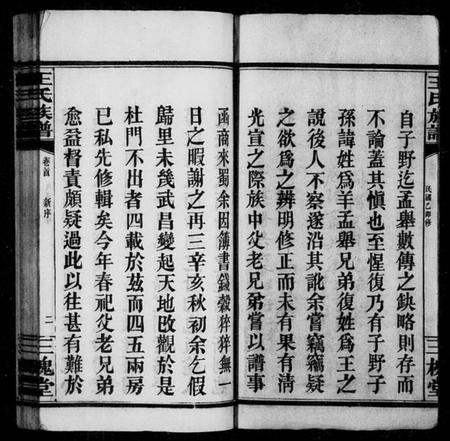 王氏族譜
民國乙卯修
三槐堂
自子野迄孟舉數傳之缺略則存而
不論蓋其慎也至惺復乃有子野子
孫諱姓爲羊孟舉兄弟復姓爲王之
說後人不察遂沿其訛余嘗竊竊疑
之欲爲之辨明修正而未有果有清
光宣之際族中父老兄弟嘗以譜事
函商來蜀余因簿書錢穀猝猝無一
日之暇謝之再三辛亥秋初余乞假
歸里未幾武昌變起天地改觀於是
杜門不出者四載於茲而四五兩房
已私先修輯矣今年春祀父老兄弟
愈益督責頗疑過此以往甚有難於
王氏族譜
卷首
新序
二
三槐堂